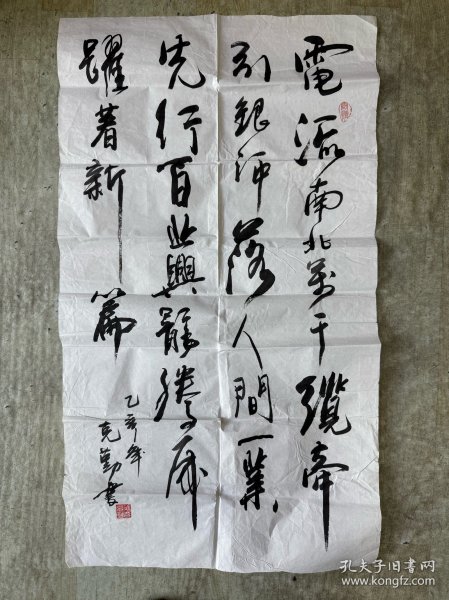 電流南北萬千纜牽
引銀河落人間一業
先行百业興龍騰虎
躍著新篇
乙亥年
克勤書
孔夫子旧书网
www.kongfz.com